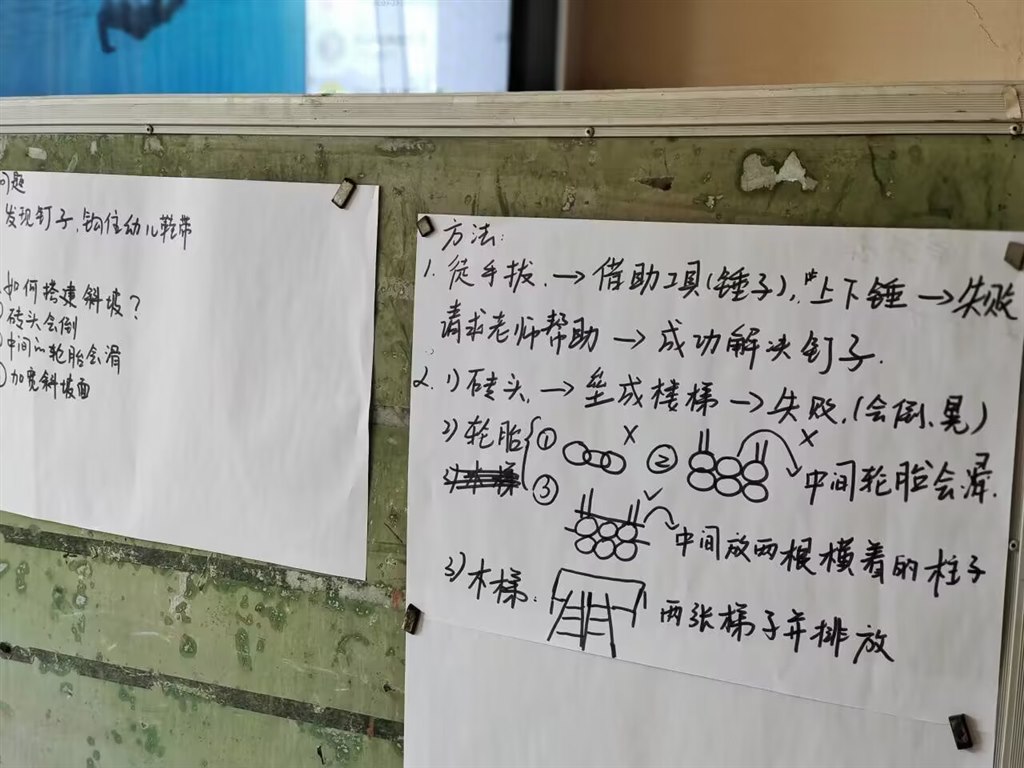 问题
发现钉子,钩住幼儿鞋带
如何搭建斜坡?
砖头会倒
中间的轮胎会滑
加宽斜坡面
方法:
1. 徒手拔. → 借助工具(锤子), 上下锤 → 失败
请求老师帮助 → 成功解决钉子.
2. 1) 砖头 → 垒成楼梯 → 失败.(会倒、晃)
2) 轮胎 { ① × ② × 中间轮胎会滑.
③ ✓ 中间放两根横着的柱子
3) 木梯: 两张梯子并排放